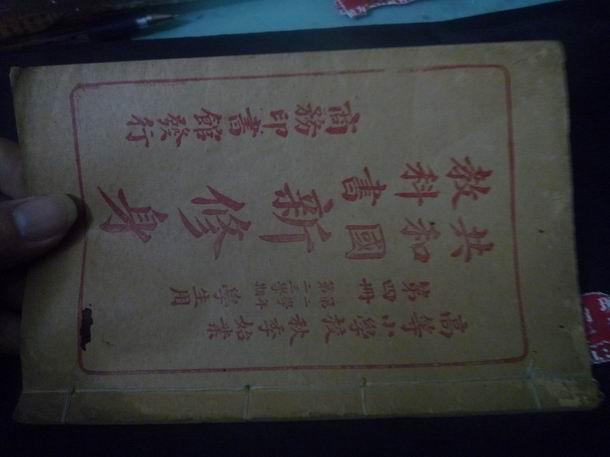 高等小學校秋季始業
第四冊
第二學年
第二三學期
學生用
共和國
教科書
新修身
商務印書館發行